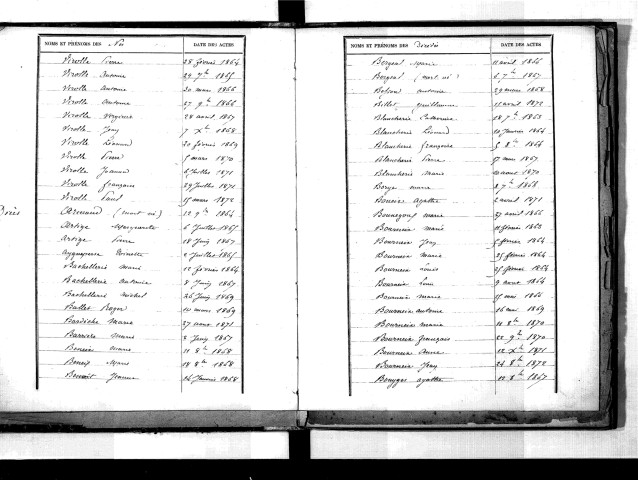 NOMS ET PRÉNOMS DES Nés DATE DES ACTES
Virolle Pierre 28 février 1864
Virolle Antoine 29 7bre 1865
Virolle Antoine 20 mars 1866
Virolle Antoine 27 9bre 1866
Virolle Virginie 28 août 1867
Virolle Jony 7 Xbre 1868
Virolle Léonard 20 février 1869
Virolle Pierre 5 mars 1870
Virolle Jeanne 6 juillet 1871
Virolle françois 29 juillet 1872
Virolle Paul 15 mars 1872
Décès
Armand (mort né) 12 9bre 1864
Artige Marguerite 6 juillet 1865
Artige Pierre 18 Juin 1867
Noinette 2 Juillet 1865
Bachellerie Marie 12 février 1864
Bachellerie Antoine 8 Juin 1867
Bachellerie Michel 26 Juin 1869
Ballet Roger 10 mars 1869
Bardèche Marie 27 mars 1871
Barrière Marie 3 Juin 1867
Benoist Marie 11 8bre 1868
Benoit Marie 14 8bre 1868
Benoit Jeanne 14 Janvier 1868
NOMS ET PRÉNOMS DES Décédés DATE DES ACTES
Bergeal Marie 11 avril 1866
Bergeal (mort né) 6 7bre 1867
Antoine 29 mars 1868
Billet Guillaume 15 avril 1872
Blancherie Catherine 18 7bre 1863
Blancherie Léonard 10 Janvier 1864
Blancherie françoise 5 8bre 1866
Blancherie Pierre 17 mai 1867
Blancherie Marie 10 août 1870
marie 8 7bre 1868
Agathe 2 avril 1871
Bonnegout marie 27 avril 1866
Bourneix marie 11 février 1863
Bourneix Jony 5 février 1864
Bourneix Marie 25 février 1864
Bourneix Louis 25 février 1864
Bourneix Pierre 9 août 1864
Bourneix Marie 15 mai 1866
Bourneix antoine 16 mai 1869
Bourneix marie 11 8bre 1870
Bourneix françois 22 9bre 1870
Bourneix Anne 12 Xbre 1871
Bourneix Jony 24 8bre 1872
Bouyges agathe 12 8bre 1867